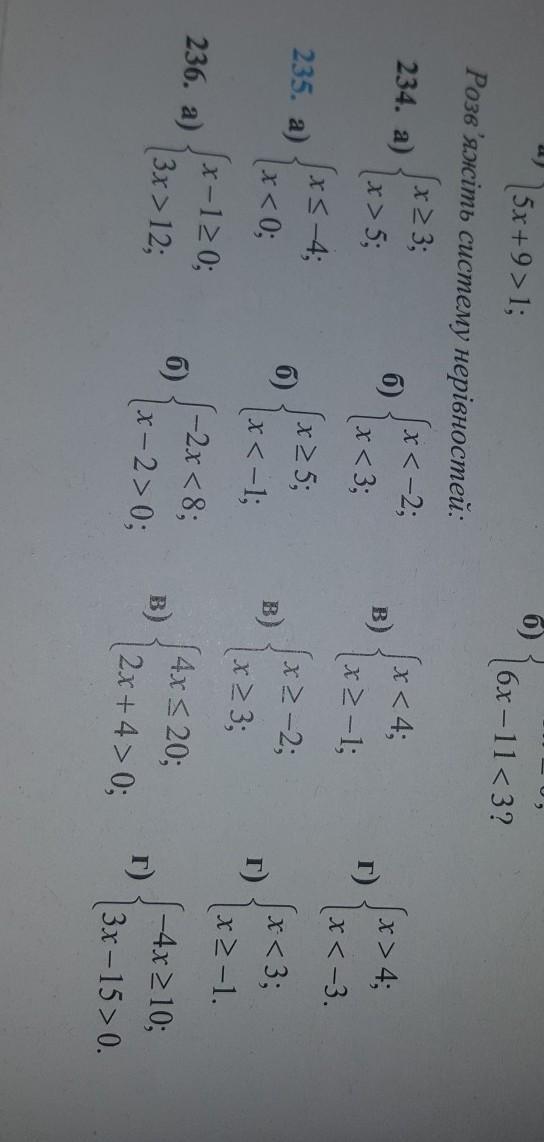 а) { 5x + 9 > 1;
б) { 6x − 11 < 3?
Розв'яжіть систему нерівностей:
234. а) { x ≥ 3; x > 5; б) { x < −2; x < 3; в) { x < 4; x ≥ −1; г) { x > 4; x < −3.
235. а) { x ≤ −4; x < 0; б) { x ≥ 5; x < −1; в) { x ≥ −2; x ≥ 3; г) { x < 3; x ≥ −1.
236. а) { x − 1 ≥ 0; 3x > 12; б) { −2x < 8; x − 2 > 0; в) { 4x ≤ 20; 2x + 4 > 0; г) { −4x ≥ 10; 3x − 15 > 0.